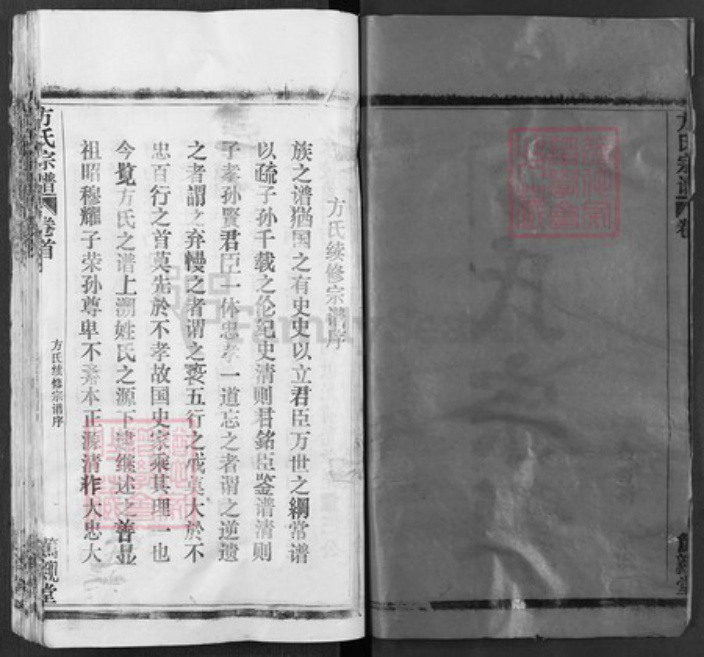 方氏宗谱 卷
篤親堂
方氏续修宗谱序
族之谱猶国之有史史以立君臣万世之綱常谱
以疏子孙千载之伦纪史清则君銘臣鉴谱清则
子孝孙賢君臣一体忠孝一道忘之者谓之逆遗
之者謂之弃慢之者谓之亵五行之戒莫大於不
忠百行之首莫先於不孝故国史家乘其理一也
今覧方氏之谱上溯姓氏之源下继述之善显
祖昭穆耀子荣孙尊卑不紊本正源清祚大忠大
方氏宗谱 卷首
方氏续修宗谱序
篤親堂